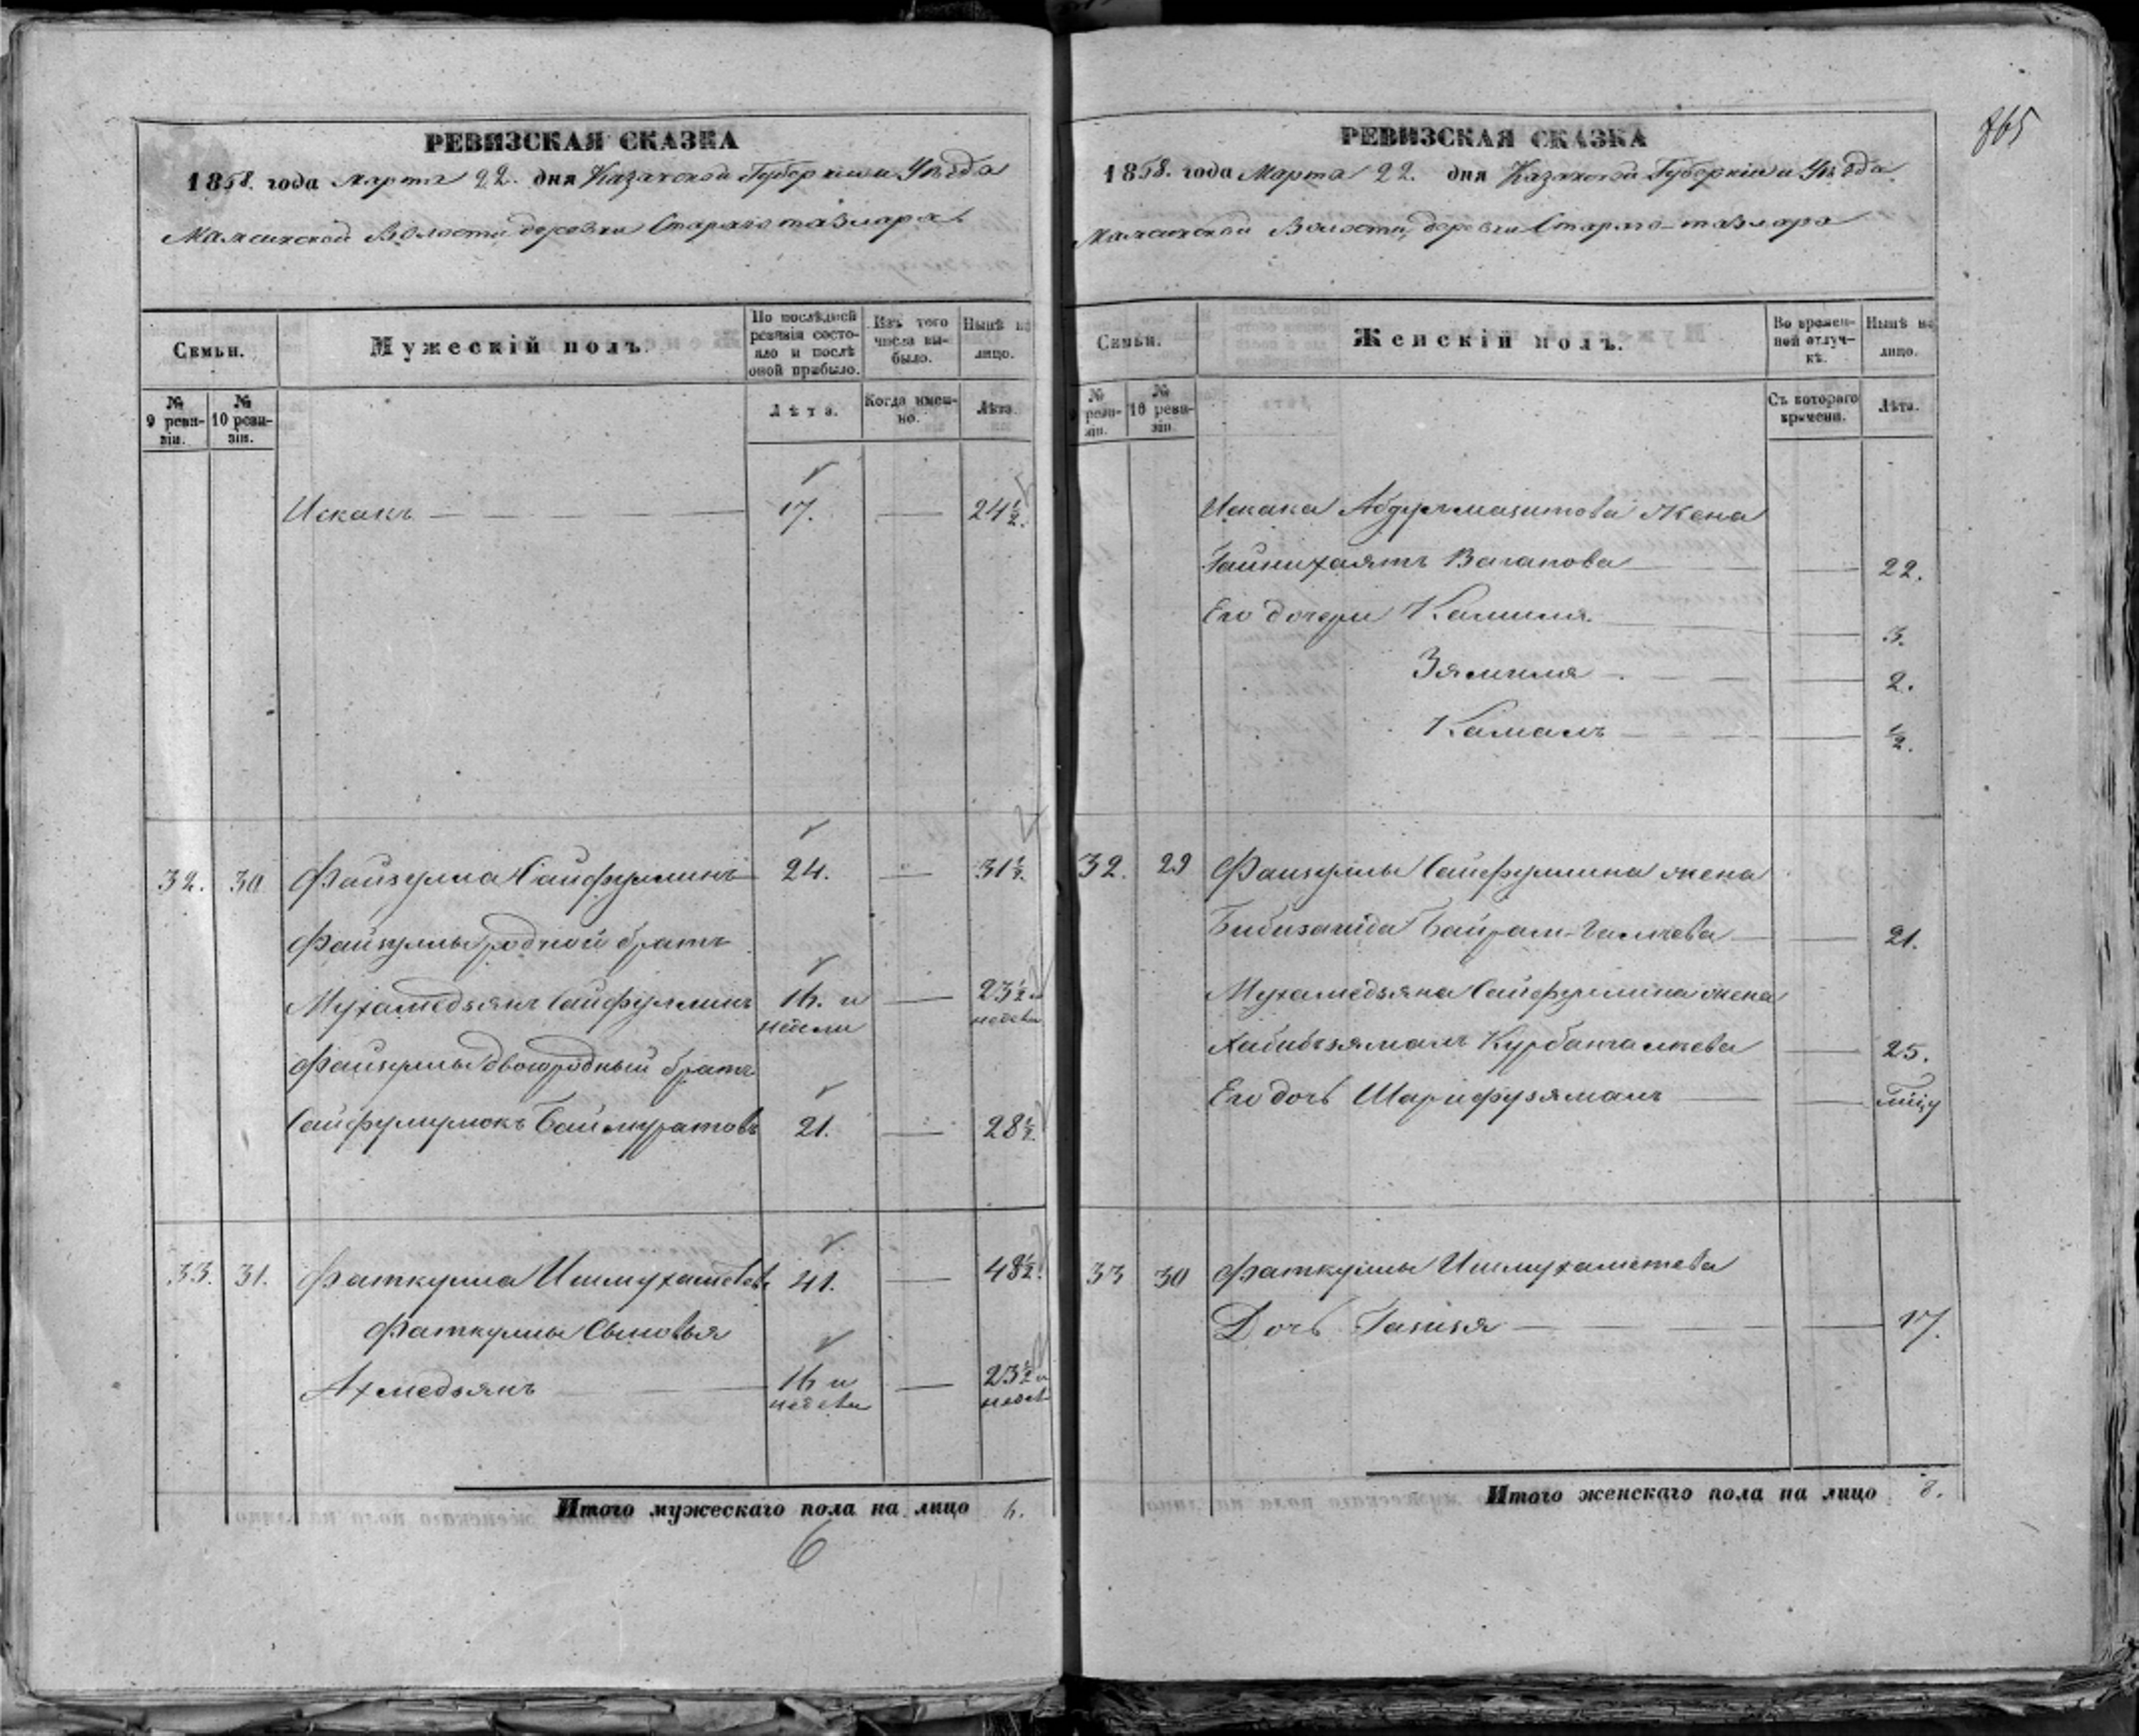 РЕВИЗСКАЯ СКАЗКА
1858. года Марта 22. дня Казанской Губерніи и Уѣзда
Мамсинской Волости, деревни Стараго тазлара
Семьи.
Мужескій полъ.
По послѣдней ревизіи состояло и послѣ оной прибыло.
Изъ того числа выбыло.
Нынѣ на лицо.
№ 9 ревизіи.
№ 10 ревизіи.
Лѣта.
Когда именно.
Лѣта.
Искакъ — 17. — 24½.
32. 30 Файзулла Сайфуллинъ 24. — 31½.
Файзуллы родной братъ
Мухамедзянъ Сайфуллинъ 16. и недели — 23½ и недели
Файзуллы двоюродный братъ
Сайфулмулюкъ Баймуратовъ 21. — 28½.
33. 31. Фаткулла Ишмухаметовъ 41. — 48½.
Фаткуллы Сыновья
Ахмедзянъ — 16 и недели — 23½ и недели
Итого мужескаго пола на лицо 6.
6
865
РЕВИЗСКАЯ СКАЗКА
1858. года Марта 22. дня Казанской Губерніи и Уѣзда
Мамсинской Волости, деревни Стараго-тазлара
Семьи.
Женскій полъ.
Во временной отлучкѣ.
Нынѣ на лицо.
№ 9 ревизіи.
№ 10 ревизіи.
Съ котораго времени.
Лѣта.
Искака Абдулмазитова жена
Гайнихаятъ Вагапова — 22.
Его дочери Камиля — 3.
Зямиля — 2.
Камалъ — ½.
32. 29 Файзуллы Сайфуллина жена
Бибизаида Байрам-Галиева — 21.
Мухамедзяна Сайфуллина жена
Хабибзямалъ Курбангалиева — 25.
Его дочь Шарифузямалъ —
33 30 Фаткуллы Ишмухаметева
Дочь Газизя — 17.
Итого женскаго пола на лицо 8.